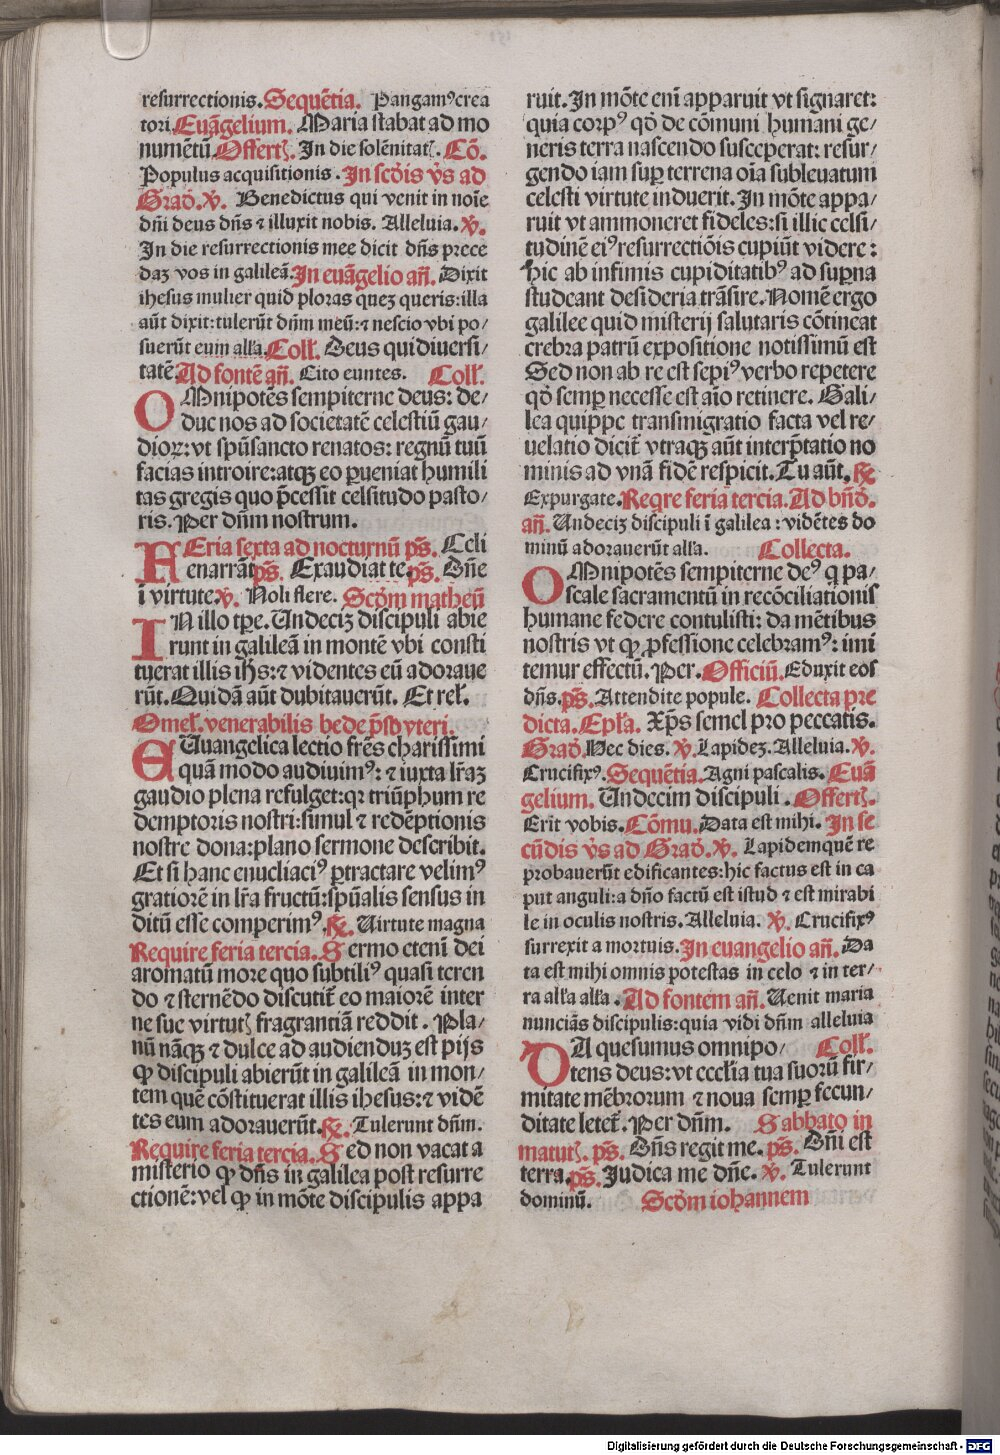 resurrectionis. Sequẽtia. Pangamꝰ crea
tori. Euãgelium. Maria stabat ad mo
numẽtũ Offertꝭ. In die solẽnitatꝭ. Cõ.
Populus acquisitionis. In scđis v̉s ad
Građ. v̉. Benedictus qui venit in noĩe
dñi deus dñs ⁊ illuxit nobis. Alleluia. v̉.
In die resurrectionis mee dicit dñs prece
daꝫ vos in galileã. In euãgelio añ. Dixit
ihesus mulier quid ploras queꝫ queris: illa
aũt dixit: tulerũt dñm meũ: ⁊ nescio vbi po/
suerũt eum alľa. Colľ. Deus qui diuersi/
tatẽ Ad fontẽ añ. Cito euntes. Colľ.
OMnipotẽs sempiterne deus: de/
duc nos ad societatẽ celestiũ gau/
dioꝝ: vt spũsancto renatos: regnũ tuũ
facias introire: atqꝫ eo ꝑueniat humili
tas gregis quo p̃cessit celsitudo pasto/
ris. Per dñm nostrum.
FEria sexta ad nocturnũ pš. Celi
enarrãt pš. Exaudiat te. pš. Dñe
ĩ virtute. v̉. Noli flere. Scđm matheũ
IN illo tꝑe. Undeciꝫ discipuli abie
runt in galileã in montẽ vbi consti
tuerat illis ihs: ⁊ videntes eũ adoraue
rũt. Quidã aũt dubitauerũt. Et relˀ.
Omelˀ. venerabilis bede p̃sbyteri.
EUuangelica lectio frẽs charissimi
quã modo audiuimꝰ: ⁊ iuxta lr̃aꝫ
gaudio plena refulget: qꝛ triũphum re
demptoris nostri: simul ⁊ redẽptionis
nostre dona: plano sermone describit.
Et si hanc enucliaciꝰ ꝑtractare velimꝰ
gratiorẽ in lr̃a fructũ: spũalis sensus in
ditũ esse comperimꝰ. ℟. Uirtute magna
Require feria tercia. Sermo etenĩ dei
aromatũ more quo subtiliꝰ quasi teren
do ⁊ sternẽdo discutit̃ eo maiorẽ inter
ne sue virtutꝭ fragrantiã reddit. Pla/
nũ nãqꝫ ⁊ dulce ad audienduꝫ est pijs
ꝙ discipuli abierũt in galileã in mon/
tem quẽ cõstituerat illis ihesus: ⁊ vidẽ
tes eum adorauerũt. ℟. Tulerunt dñm.
Require feria tercia. Sed non vacat a
misterio ꝙ dñs in galilea post resurre
ctionẽ: vel ꝙ in mõte discipulis appa
ruit. In mõte enĩ apparuit vt signaret:
quia corpꝰ qđ de cõmuni humani ge/
neris terra nascendo susceperat: resur/
gendo iam suꝑ terrena oĩa subleuatum
celesti virtute induerit. In mõte appa/
ruit vt ammoneret fideles: si illic celsi/
tudinẽ eiꝰ resurrectiõis cupiũt videre:
hic ab infimis cupiditatibꝰ ad suꝑna
studeant desideria trãsire. Nomẽ ergo
galilee quid misterij salutaris cõtineat
crebra patrũ expositione notissimũ est
Sed non ab re est sepiꝰ verbo repetere
qđ semꝑ necesse est aĩo retinere. Gali/
lea quippe transmigratio facta vel re/
uelatio dicit̃ vtraqꝫ aũt interp̃tatio no
minis ad vnã fidẽ respicit. Tu aũt. ℟
Expurgate. Reqre feria tercia. Ad bñđ.
añ. Undeciꝫ discipuli ĩ galilea: vidẽtes do
minũ adorauerũt alľa. Collecta.
OMnipotẽs sempiterne deꝰ q pa/
scale sacramentũ in recõciliationis
humane federe contulisti: da mẽtibus
nostris vt ꝙ ꝓfessione celebramꝰ: imi
temur effectũ. Per. Officiũ. Eduxit eos
dñs. pš. Attendite popule. Collecta pre
dicta. Epľa. Xp̃s semel pro peccatis.
Građ. Nec dies. v̉. Lapideꝫ. Alleluia. v̉.
Crucifixꝰ. Sequẽtia. Agni pascalis. Euã
gelium. Undecim discipuli. Offertꝭ.
Erit vobis. Cõmu. Data est mihi. In se
cũdis v̉s ad Građ. v̉. Lapidemquẽ re
probauerũt edificantes: hic factus est in ca
put anguli: a dño factũ est istud ⁊ est mirabi
le in oculis nostris. Alleluia. v̉. Crucifixꝰ
surrexit a mortuis. In euangelio añ. Da
ta est mihi omnis potestas in celo ⁊ in ter/
ra alľa alľa. Ad fontem añ. Uenit maria
nunciãs discipulis: quia vidi dñm alleluia
DA quesumus omnipo/ Colľ.
tens deus: vt ecclĩa tua suorũ fir/
mitate mẽbrorum ⁊ noua semꝑ fecun/
ditate letet̃. Per dñm. Sabbato in
matutꝭ. pš. Dñs regit me. pš. Dñi est
terra. pš. Judica me dñe. v̉. Tulerunt
dominũ. Scđm iohannem
Digitalisierung gefördert durch die Deutsche Forschungsgemeinschaft - DFG